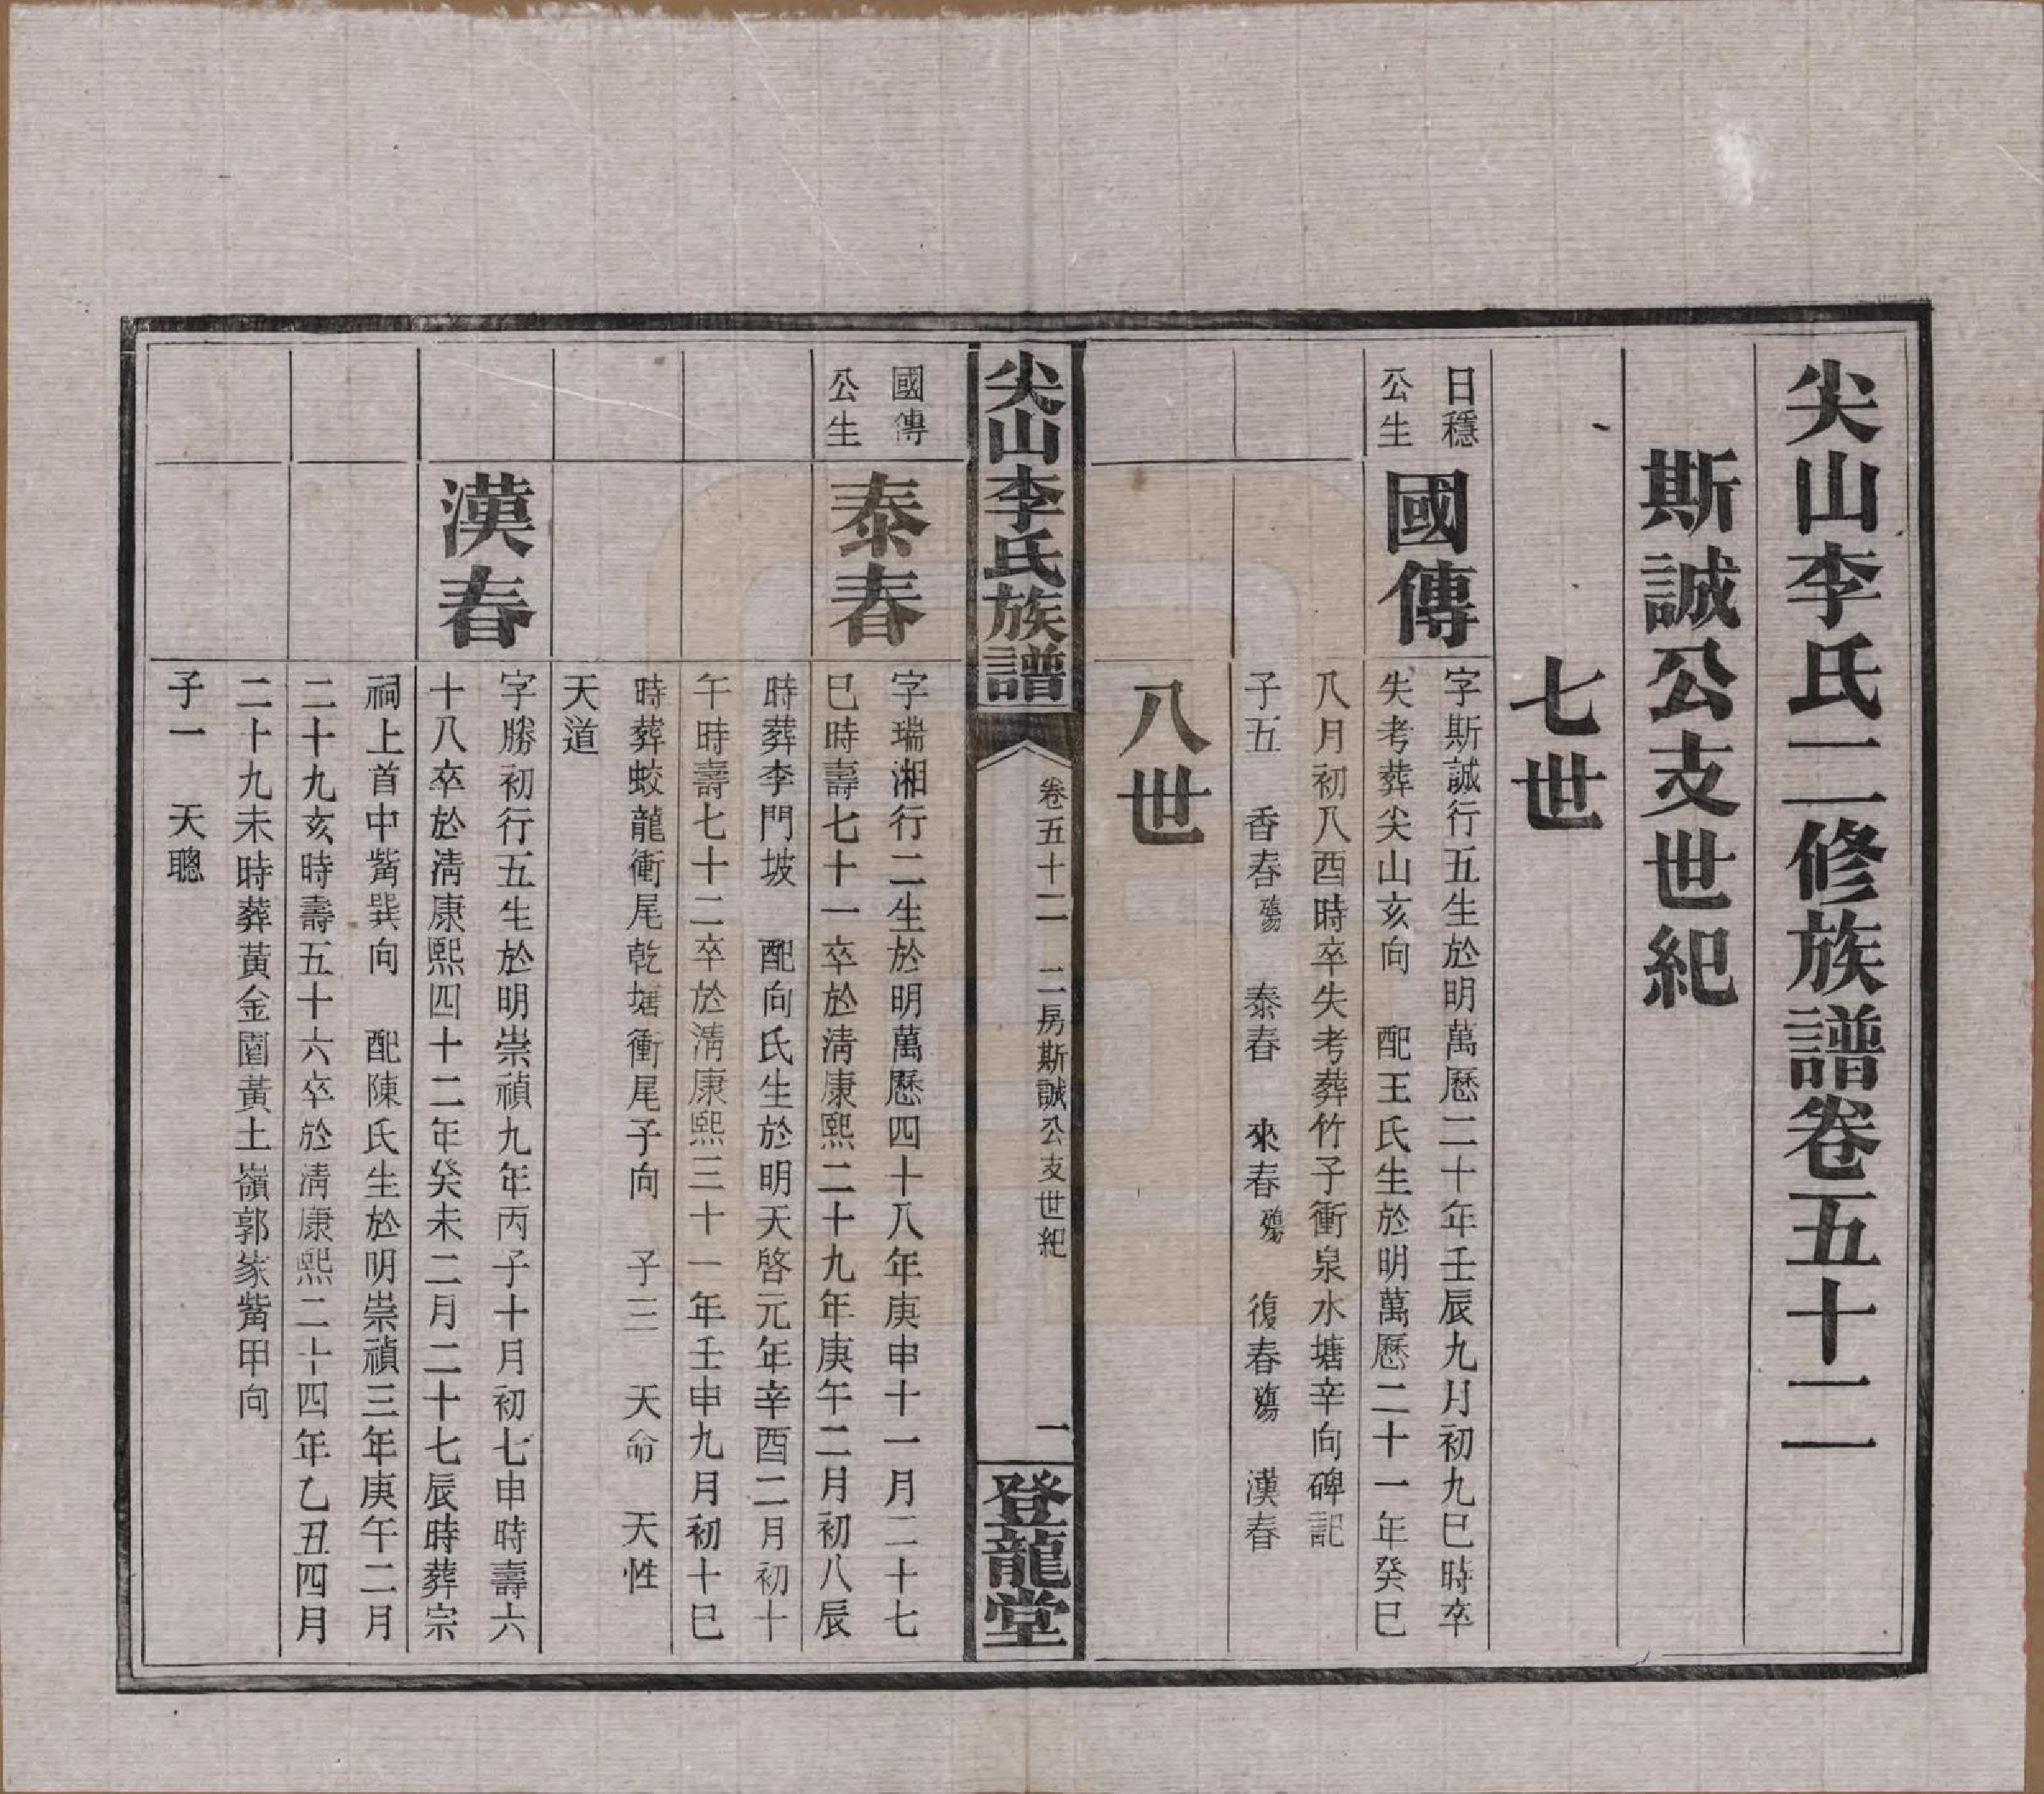 尖山李氏二修族譜卷五十二
斯誠公支世紀
七世
日穩
公生
國傳
字斯誠行五生於明萬歷二十年壬辰九月初九巳時卒
失考葬尖山亥向　配王氏生於明萬歷二十一年癸巳
八月初八酉時卒失考葬竹子衝泉水塘辛向碑記
子五　香春殤　泰春　來春殤　復春殤　漢春
八世
尖山李氏族譜
卷五十二　二房斯誠公支世紀
一
登龍堂
國傳
公生
泰春
字瑞湘行二生於明萬歷四十八年庚申十一月二十七
巳時壽七十一卒於清康熙二十九年庚午二月初八辰
時葬李門坡　配向氏生於明天啓元年辛酉二月初十
午時壽七十二卒於清康熙三十一年壬申九月初十巳
時葬蛟龍衝尾乾塘衝尾子向　子三　天命　天性
天道
漢春
字勝初行五生於明崇禎九年丙子十月初七申時壽六
十八卒於清康熙四十二年癸未二月二十七辰時葬宗
祠上首中觜巽向　配陳氏生於明崇禎三年庚午二月
二十九亥時壽五十六卒於清康熙二十四年乙丑四月
二十九未時葬黃金園黃土嶺郭家觜甲向
子一　天聰